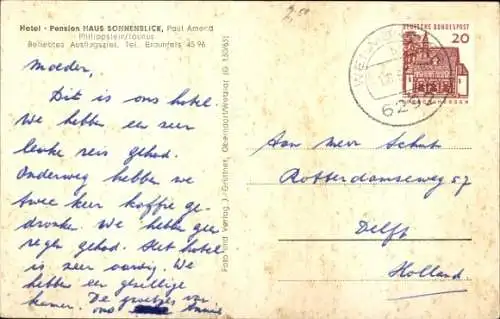 2,50
Hotel - Pension HAUS SONNENBLICK, Paul Amend
Philippstein/Taunus
Beliebtes Ausflugsziel, Tel. Braunfels 4596
Moeder,
Dit is ons hotel.
We hebben een zeer
leuke reis gehad.
Onderweg hebben we
twee keer koffie ge-
dronken. We hebben geen
regen gehad. Het hotel
is zeer aardig. We
hebben een gezellige
kamer. De groetjes van
ons Annie
Foto und Verlag J. Grüttner, Oberndorf/Wetzlar (G 1.530/65)
DEUTSCHE BUNDESPOST
20
WEILM
6292
Aan Meneer Schut
Rotterdamseweg 57
Delft
Holland